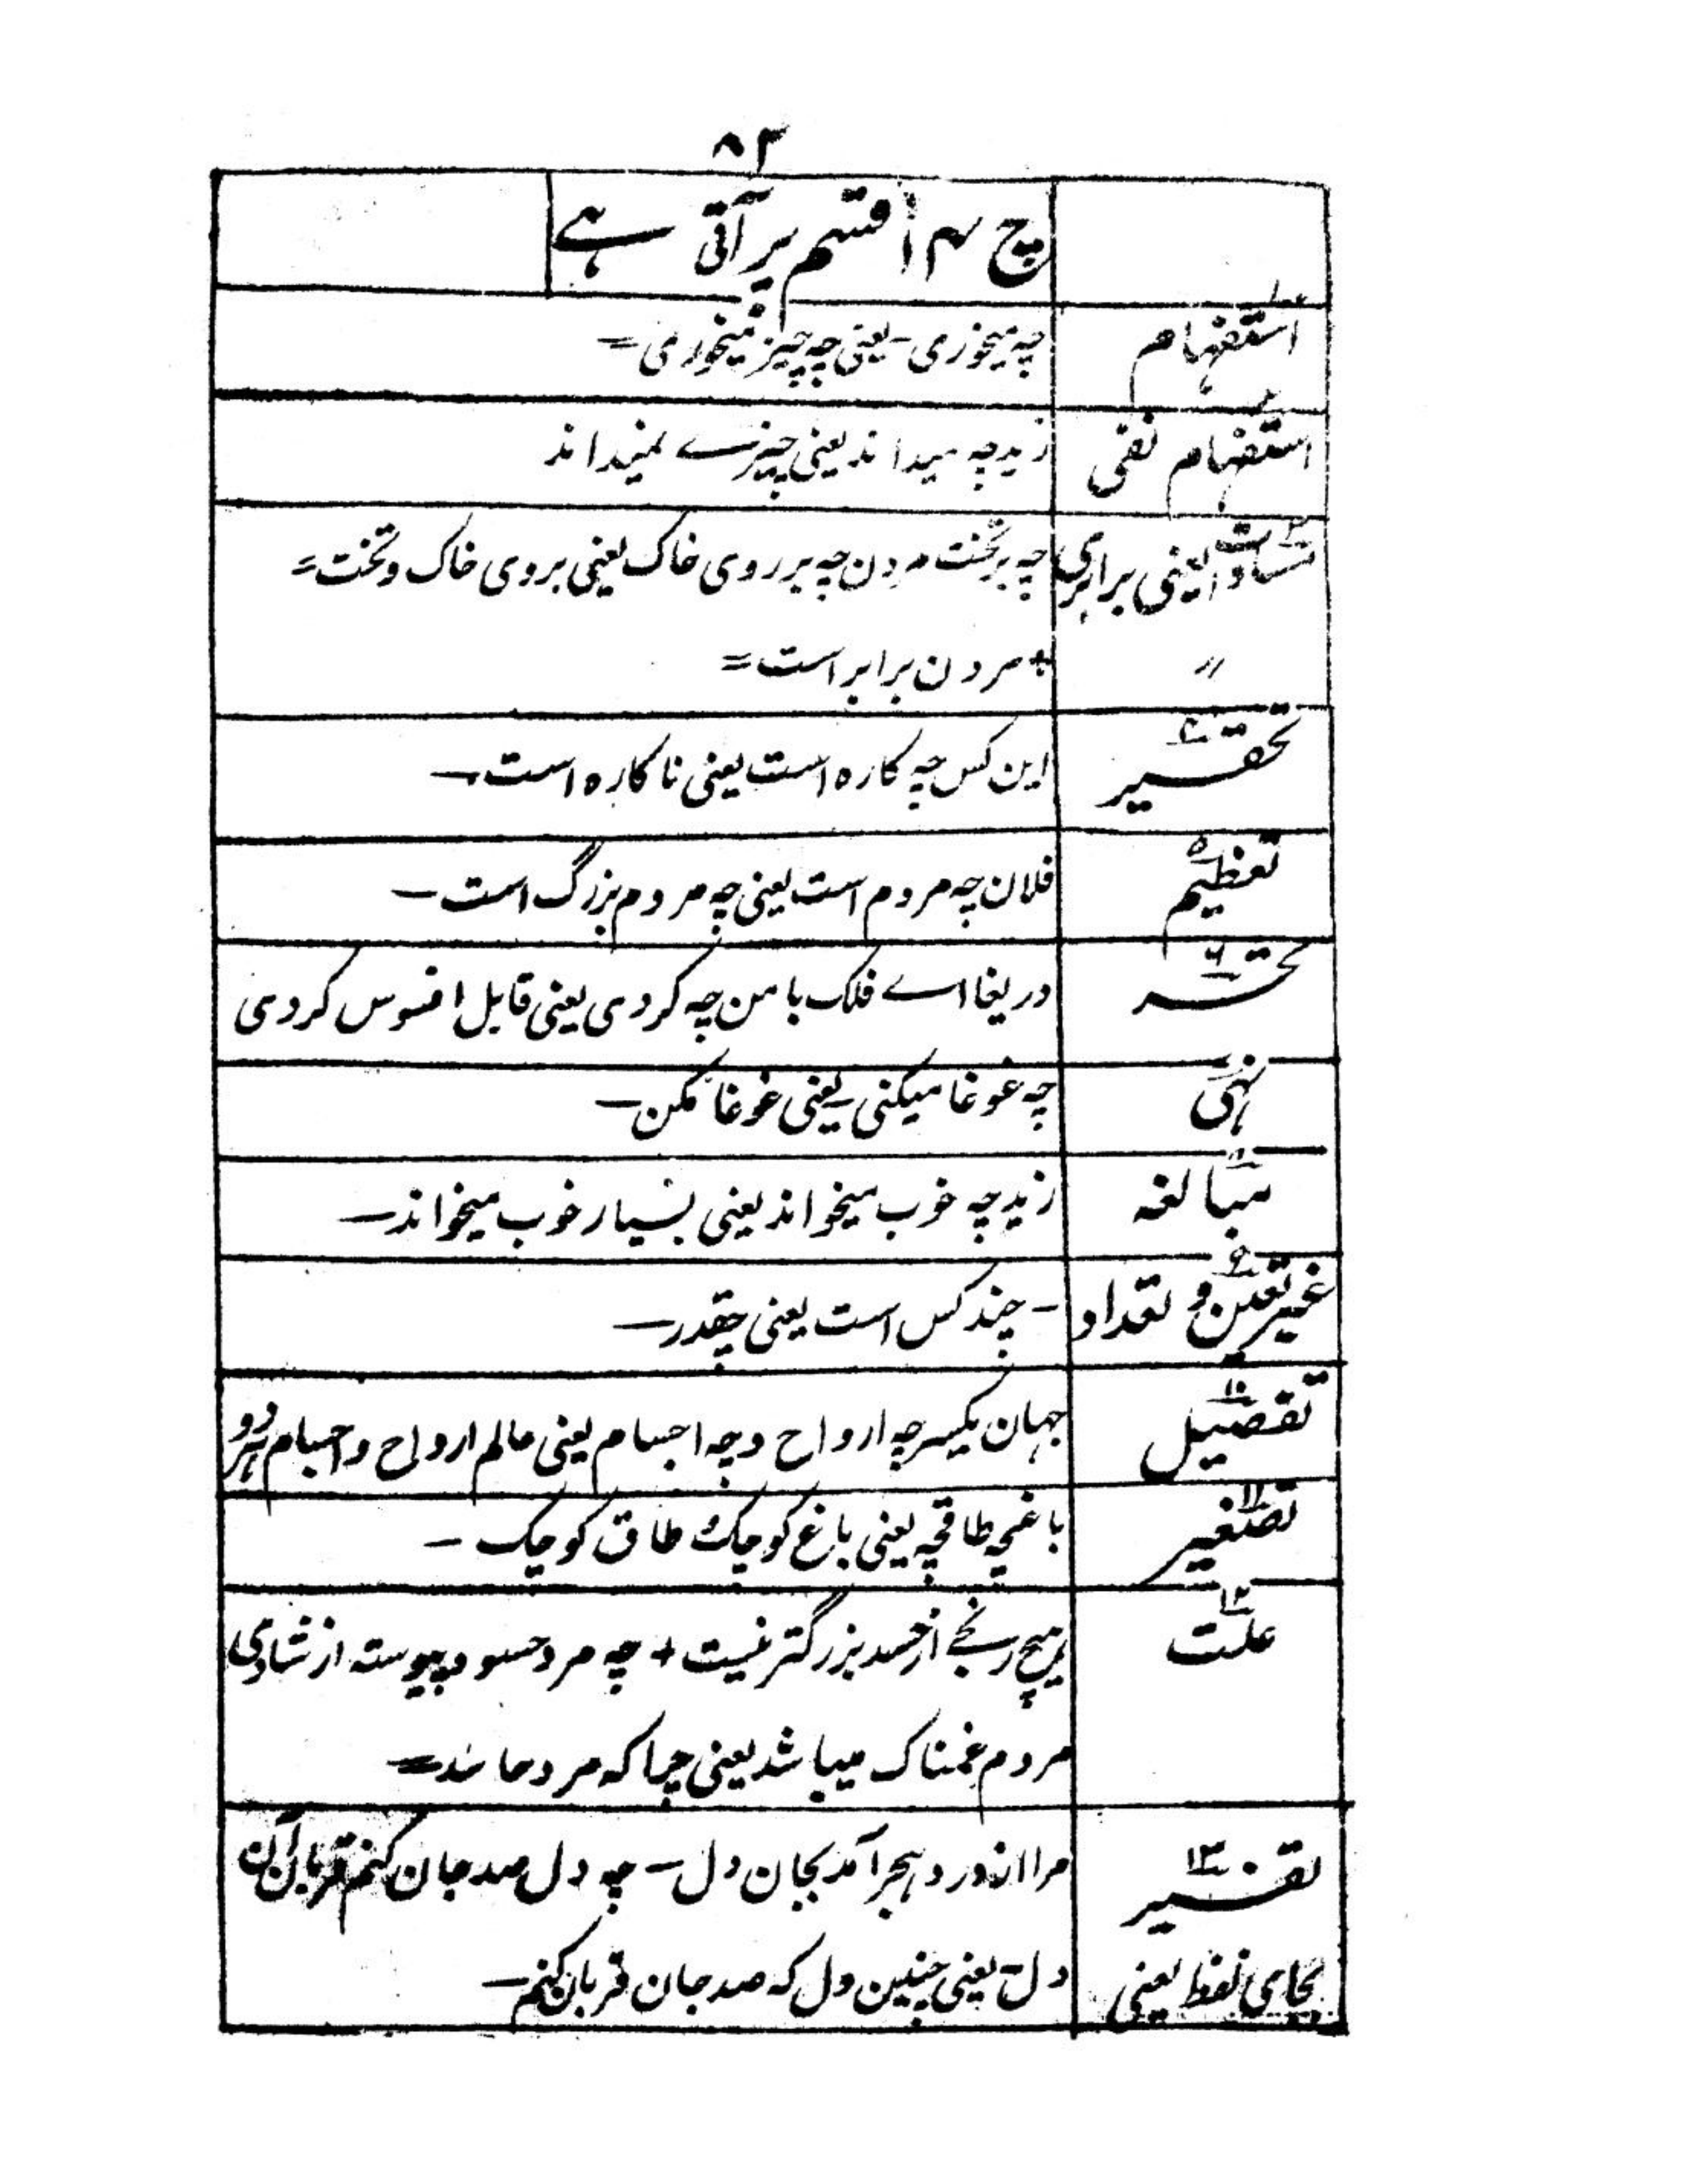 ۸۲
چ ۱۴ قسم پر آتی ہے
۱ استفہام چہ میخوری - یعنی چہ چیز میخوری =
۲ استفہام نفی زید چہ میداند یعنی چیزے نمیداند
۳ مساوات یعنی برابری چہ بر تخت مردن چہ بر روی خاک یعنی بروی خاک و تخت =
〃 + مردن برابر است =
۴ تحقیر این کس چہ کارہ است یعنی ناکارہ است –
۵ تعظیم فلان چہ مردم است یعنی چہ مردم بزرگ است –
۶ تحسر دریغا اے فلک با من چہ کردی یعنی قابل افسوس کردی
۷ نہی چہ غوغا میکنی یعنی غوغا مکن –
۸ مبالغہ زید چہ خوب میخواند یعنی بسیار خوب میخواند –
۹ غیر تعین و تعداد – چند کس است یعنی چقدر –
۱۰ تفصیل جہان یکسر چہ ارواح و چہ اجسام یعنی عالم ارواح و اجسام ہر دو
۱۱ تصغیر باغچہ طاقچہ یعنی باغ کوچک و طاق کوچک –
۱۲ علت ہیچ رنجے از حسد بزرگتر نیست + چہ مرد حسود پیوستہ از شادی
مردم غمناک میباشد یعنی چرا کہ مرد حاسد =
۱۳ تفسیر مرا از درد ہجر آمد بجان دل – چہ دل صد جان کنم قربان آن
بجای لفظ یعنی دل – یعنی چنین دل کہ صد جان قربان کنم –